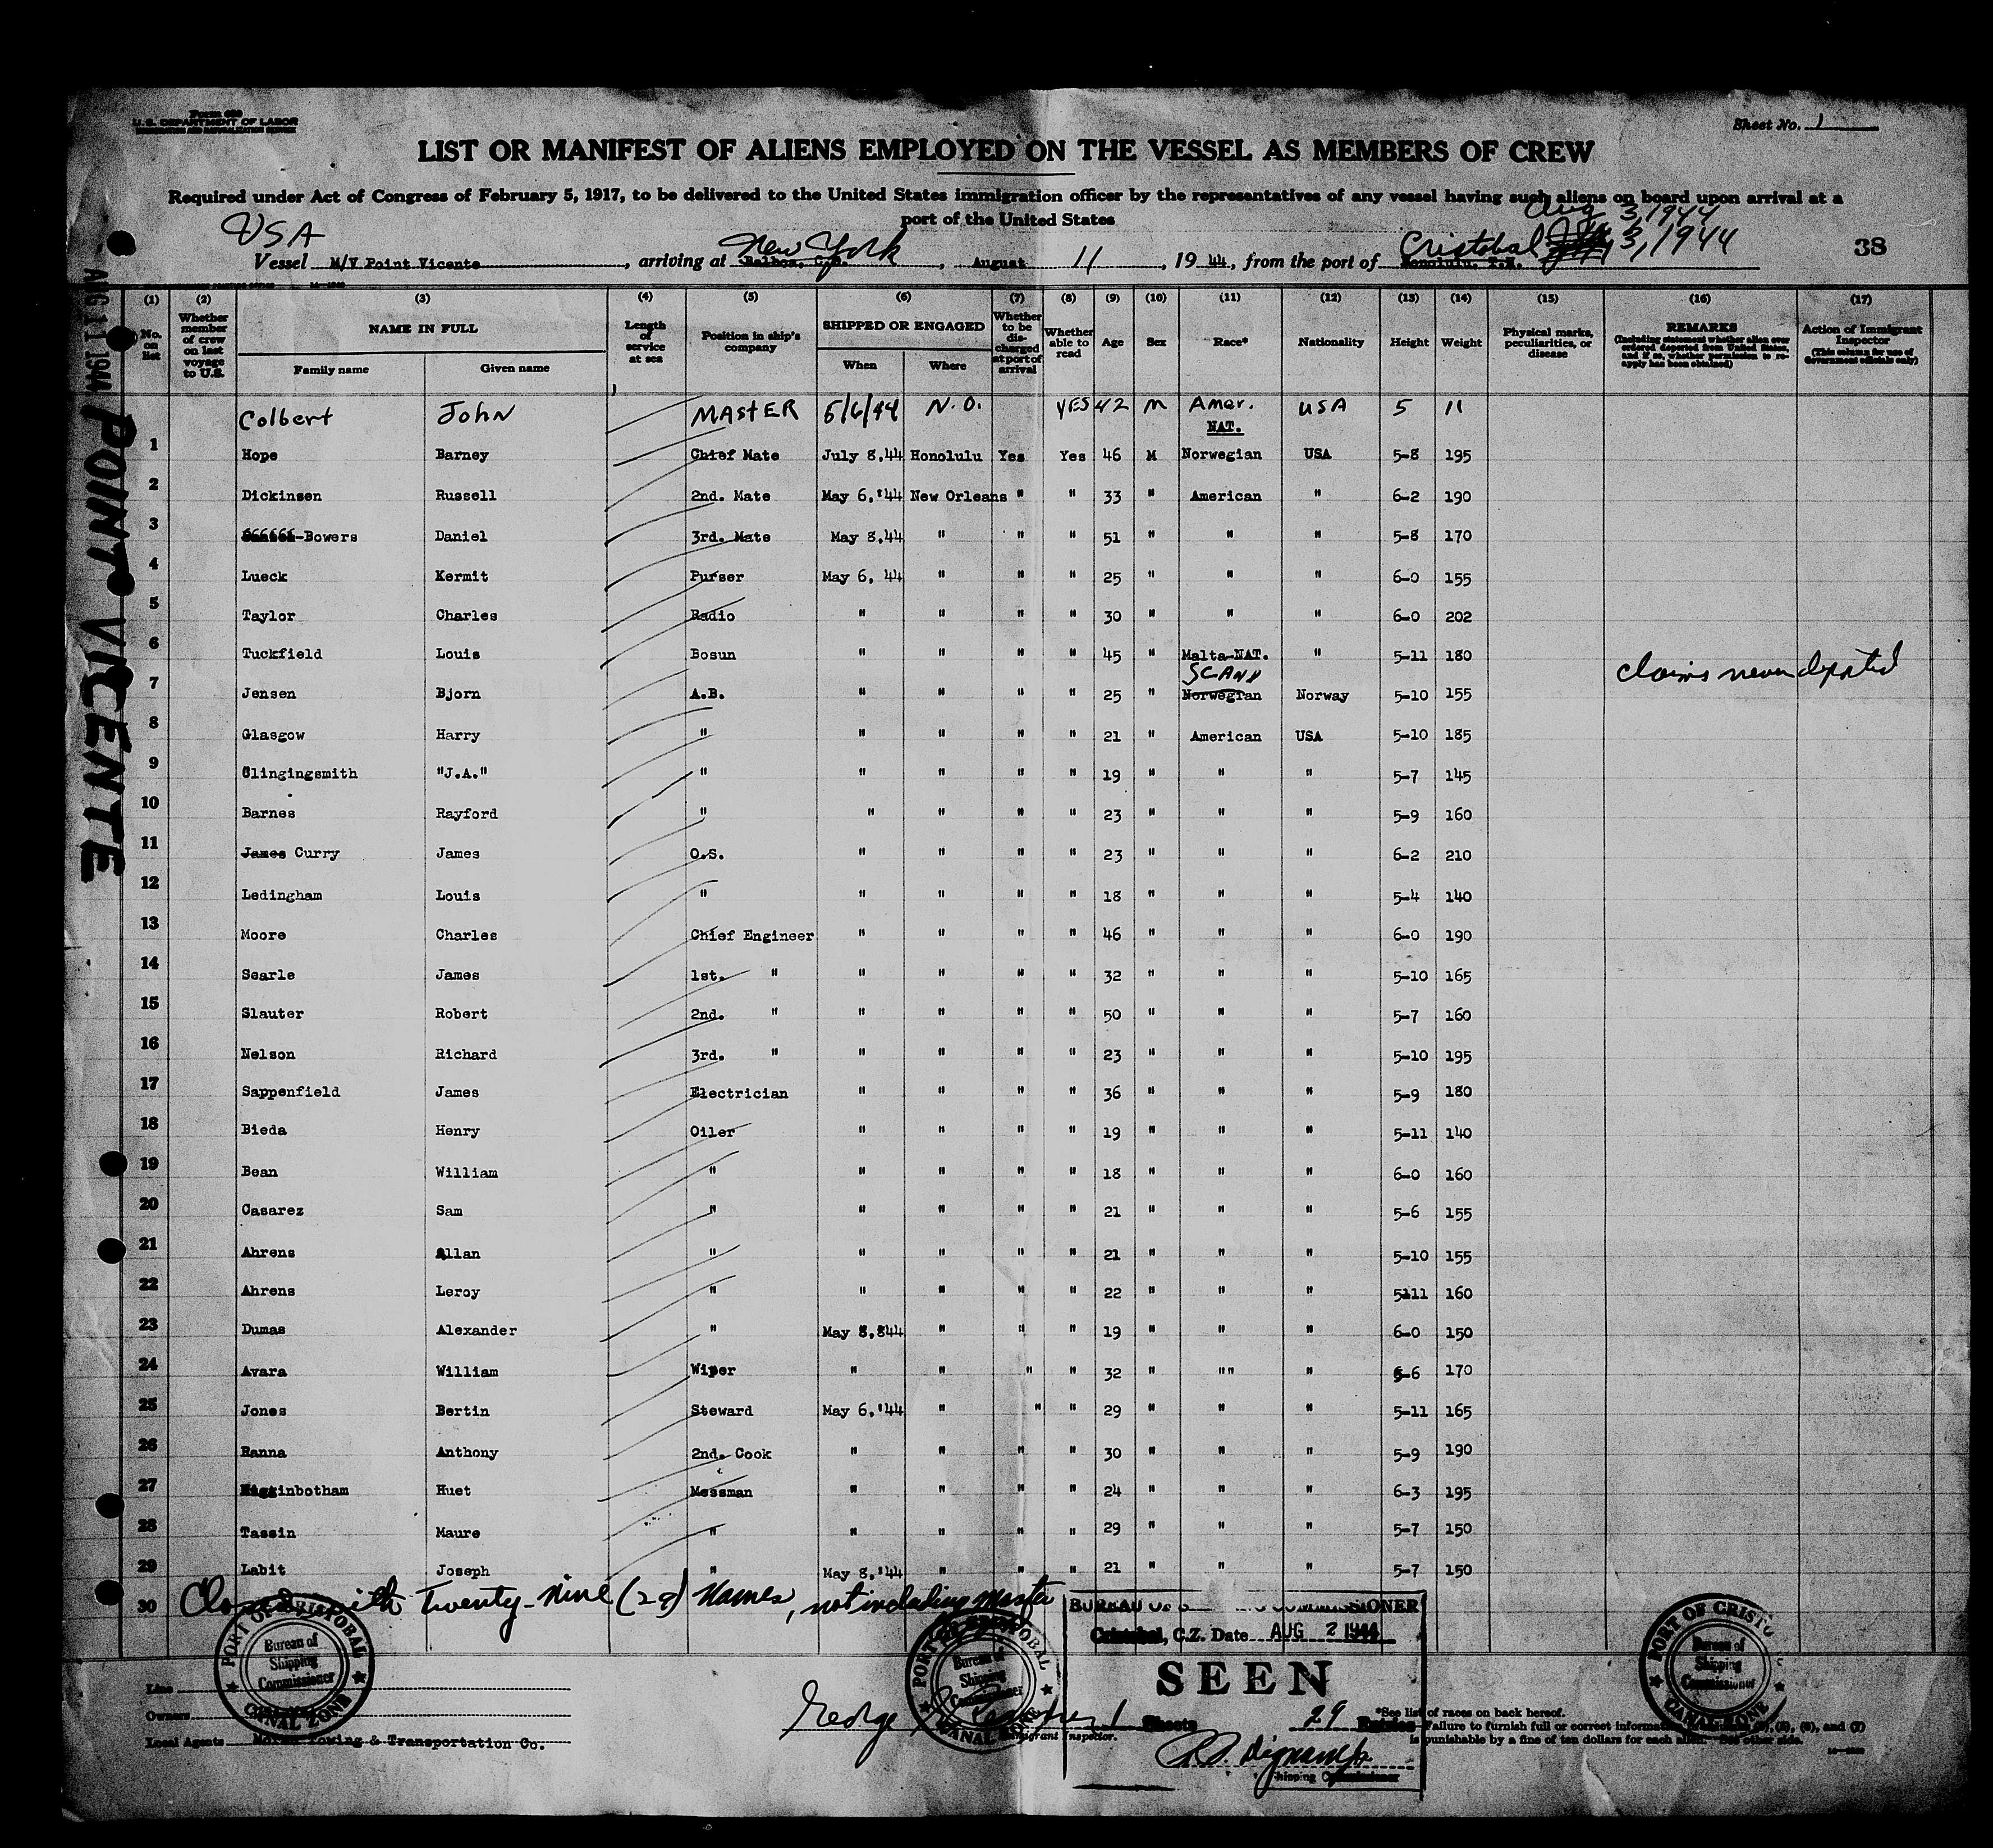 Form 680
U.S. DEPARTMENT OF LABOR
IMMIGRATION AND NATURALIZATION SERVICE
Sheet No. 1
LIST OR MANIFEST OF ALIENS EMPLOYED ON THE VESSEL AS MEMBERS OF CREW
Required under Act of Congress of February 5, 1917, to be delivered to the United States immigration officer by the representatives of any vessel having such aliens on board upon arrival at a
port of the United States
Aug 3, 1944
USA New York Cristobal 3, 1944
Vessel M/V Point Vicente, arriving at Balboa, C.Z., August 11, 1944, from the port of Honolulu, T.H.
38
AUG 11 1944
POINT VICENTE
(1) (2) (3) (4) (5) (6) (7) (8) (9) (10) (11) (12) (13) (14) (15) (16) (17)
No. on list
Whether member of crew on last voyage to U.S.
NAME IN FULL
Family name Given name
Length of service at sea
Position in ship's company
SHIPPED OR ENGAGED
When Where
Whether to be discharged at port of arrival
Whether able to read
Age Sex Race* Nationality Height Weight
Physical marks, peculiarities, or disease
REMARKS
(Including statement whether alien ever ordered deported from United States, and if so, whether permission to reapply has been obtained)
Action of Immigrant Inspector
(This column for use of Government officials only)
Colbert John MASTER 5/6/44 N.O. YES 42 M Amer. USA 5 11
NAT.
1 Hope Barney Chief Mate July 8,44 Honolulu Yes Yes 46 M Norwegian USA 5-8 195
2 Dickinsen Russell 2nd. Mate May 6,'44 New Orleans " " 33 " American " 6-2 190
3 -Bowers Daniel 3rd. Mate May 8,44 " " " 51 " " " 5-8 170
4 Lueck Kermit Purser May 6, 44 " " " 25 " " " 6-0 155
5 Taylor Charles Radio " " " " 30 " " " 6-0 202
6 Tuckfield Louis Bosun " " " " 45 " Malta-NAT. " 5-11 180
SCAND claims never deported
7 Jensen Bjorn A.B. " " " " 25 " Norwegian Norway 5-10 155
8 Glasgow Harry " " " " " 21 " American USA 5-10 185
9 Clingingsmith "J.A." " " " " " 19 " " " 5-7 145
10 Barnes Rayford " " " " " 23 " " " 5-9 160
11 James Curry James O.S. " " " " 23 " " " 6-2 210
12 Ledingham Louis " " " " " 18 " " " 5-4 140
13 Moore Charles Chief Engineer " " " " 46 " " " 6-0 190
14 Searle James 1st. " " " " " 32 " " " 5-10 165
15 Slauter Robert 2nd. " " " " " 50 " " " 5-7 160
16 Nelson Richard 3rd. " " " " " 23 " " " 5-10 195
17 Sappenfield James Electrician " " " " 36 " " " 5-9 180
18 Bieda Henry Oiler " " " " 19 " " " 5-11 140
19 Bean William " " " " " 18 " " " 6-0 160
20 Casarez Sam " " " " " 21 " " " 5-6 155
21 Ahrens Allan " " " " " 21 " " " 5-10 155
22 Ahrens Leroy " " " " " 22 " " " 5111 160
23 Dumas Alexander " May 8,844 " " " 19 " " " 6-0 150
24 Avara William Wiper " " " " 32 " "" " 5-6 170
25 Jones Bertin Steward May 6,'44 " " " 29 " " " 5-11 165
26 Ranna Anthony 2nd. Cook " " " " 30 " " " 5-9 190
27 Higginbotham Huet Messman " " " " 24 " " " 6-3 195
28 Tassin Maure " " " " " 29 " " " 5-7 150
29 Labit Joseph " May 8,'44 " " " 21 " " " 5-7 150
30 Closed with Twenty-nine (29) Names, not including Master
PORT OF CRISTOBAL
Bureau of Shipping Commissioner
CANAL ZONE
PORT OF CRISTOBAL
Bureau of Shipping Commissioner
CANAL ZONE
BUREAU OF COMMISSIONER
Cristobal, C.Z. Date AUG 2 1944
SEEN
1 Sheets 29 Entries
Shipping Commissioner
PORT OF CRISTO
Bureau of Shipping Commissioner
CANAL ZONE
Line
Owners
Local Agents Moran Towing & Transportation Co.
George
Immigrant Inspector.
*See list of races on back hereof.
Failure to furnish full or correct information (5), (6), and (7)
is punishable by a fine of ten dollars for each alien. See other side.